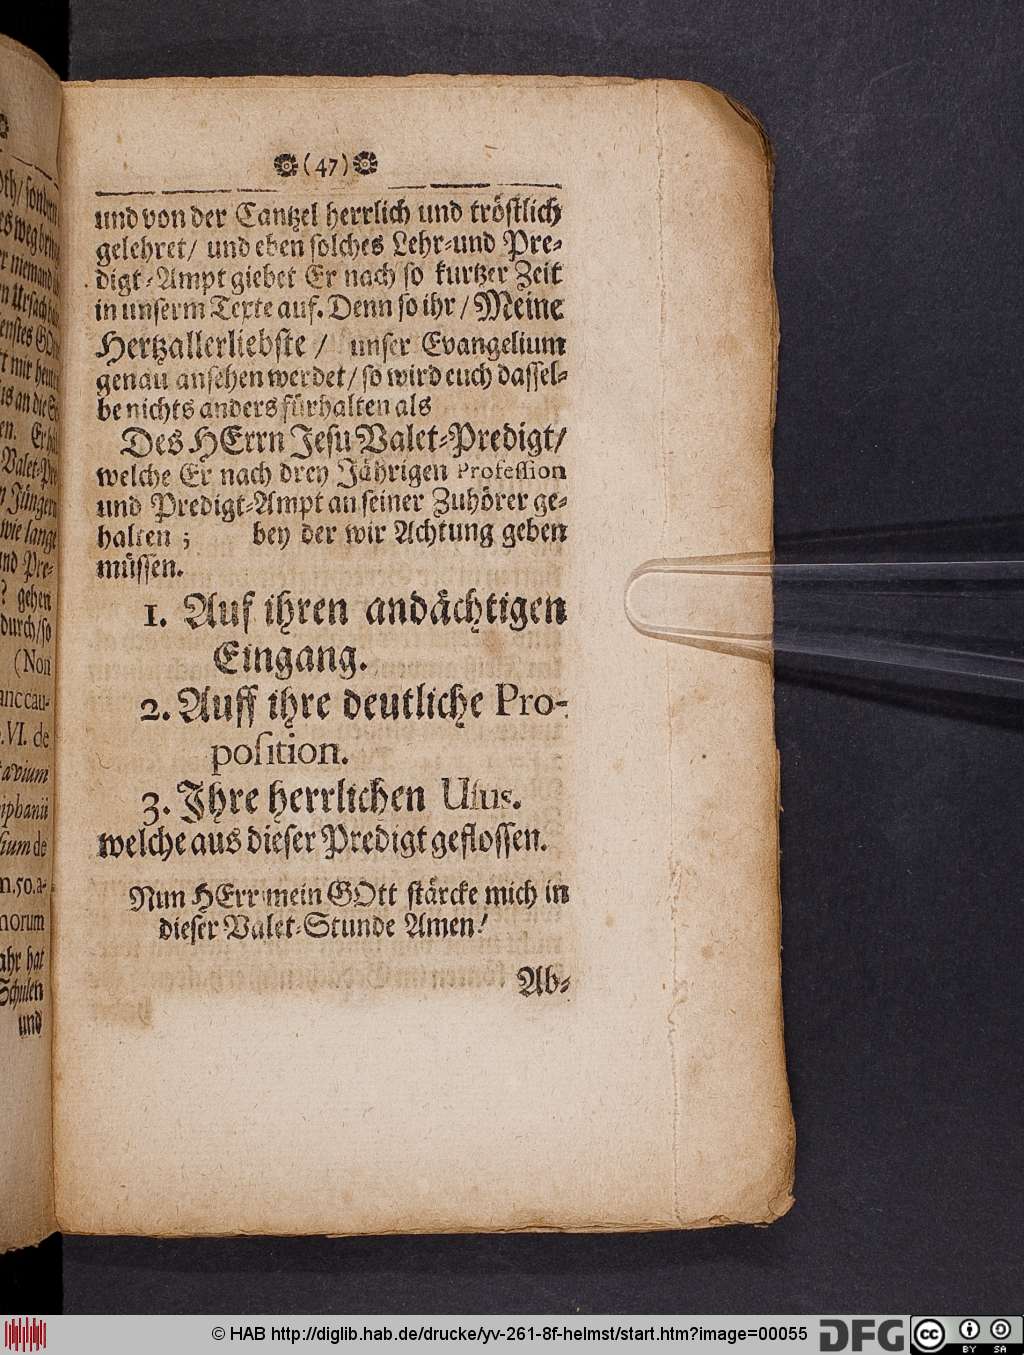 (47)
und von der Cantzel herrlich und tröstlich
gelehret/ und eben solches Lehr-und Pre-
digt-Ampt giebet Er nach so kurtzer Zeit
in unserm Texte auf. Denn so ihr/ Meine
Hertzallerliebste/ unser Evangelium
genau ansehen werdet/ so wird euch dassel-
be nichts anders fürhalten als
Des HErrn Jesu Valet-Predigt/
welche Er nach drey Jährigen Profession
und Predigt-Ampt an seiner Zuhörer ge-
halten; bey der wir Achtung geben
müssen.
1. Auf ihren andächtigen
Eingang.
2. Auff ihre deutliche Pro-
position.
3. Ihre herrlichen Usus.
welche aus dieser Predigt geflossen.
Nun HErr mein GOtt stärcke mich in
dieser Valet-Stunde Amen!
Ab-
sondern
weg
niemand
Ursach
mir
an die
en. Er
Valet-Pre
Jüngern
wie lange
und Pre-
? gehen
durch/so
(Non
anc cau-
.VI. de
iphanii
sium de
m.50.a-
norum
ahr hat
Schulen
und
© HAB http://diglib.hab.de/drucke/yv-261-8f-helmst/start.htm?image=00055
DFG
cc BY SA